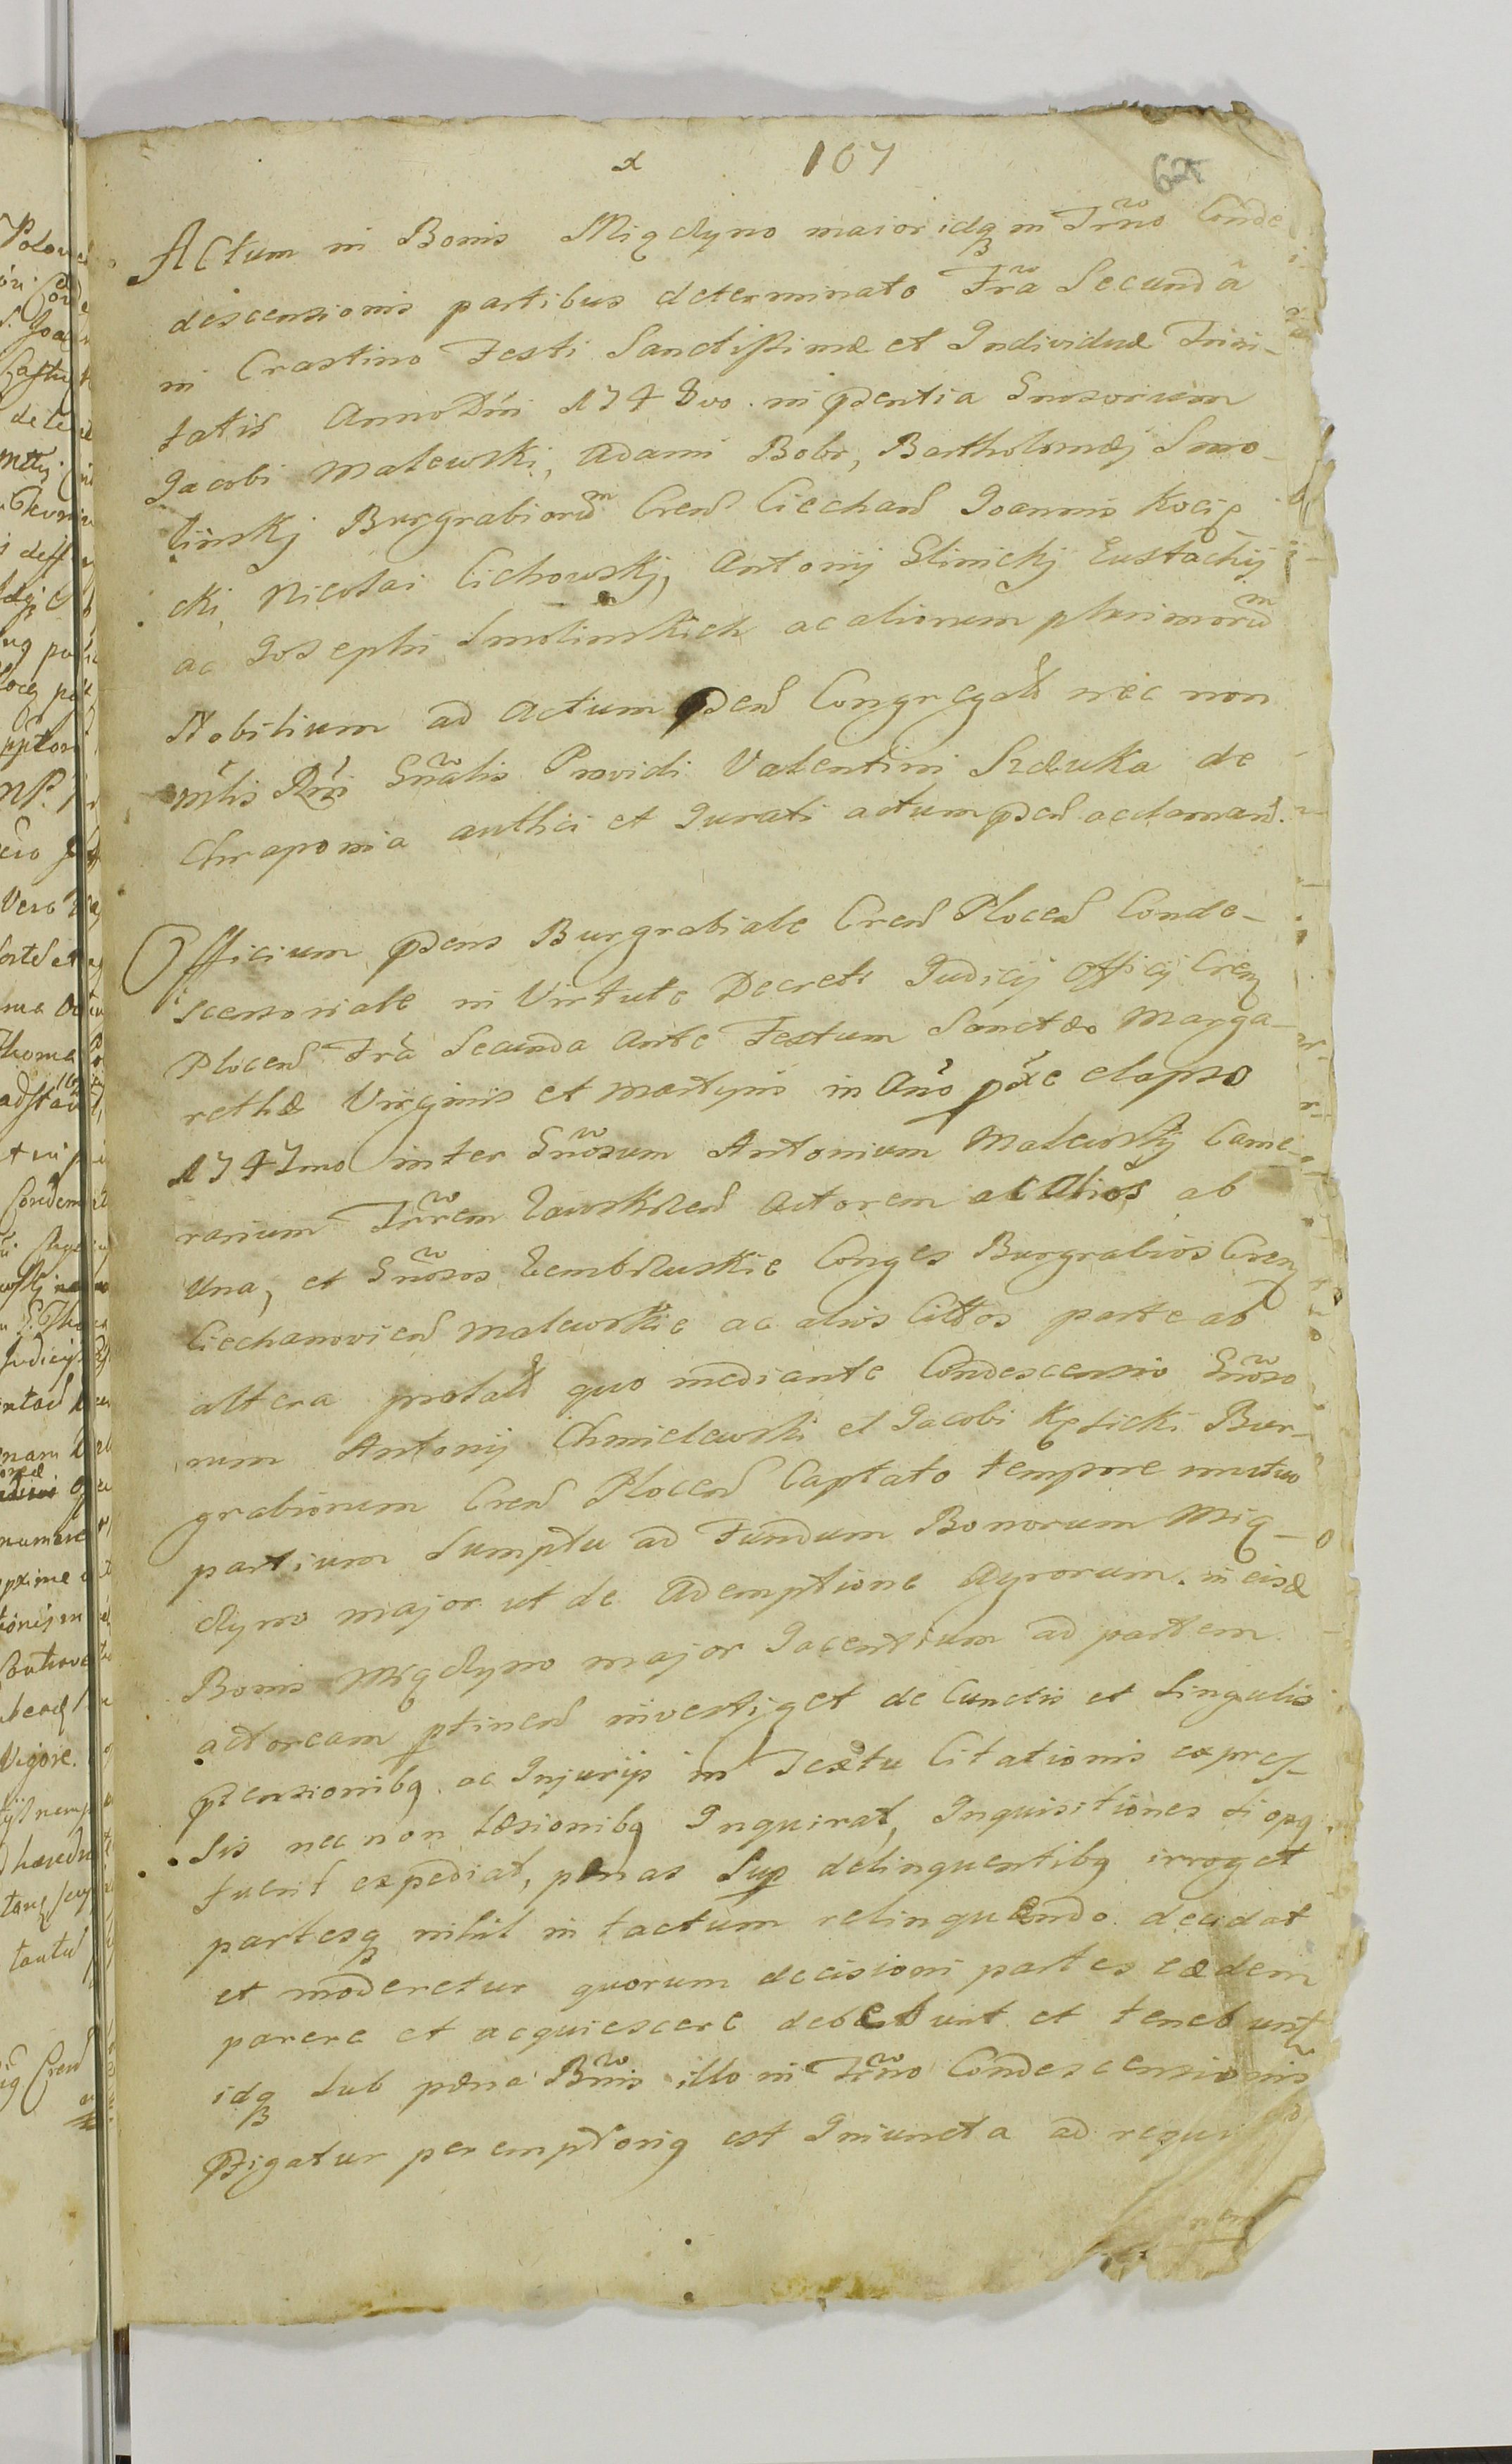 x 107 625
Actum in Bonis Miączyno maior idq in Trno Conde
descensionis partibus determinato Fra Secunda
in Crastino Festi Sanctissimæ et Individuæ Trini-
tatis Anno Dni 1748vo. in pdentia Gnosorum
Jacobi Malewski, Adami Bobr, Bartholomæj Smo-
linskj Burgrabiorum Crend Ciechand Joannis Kocię
cki, Nicolai Cichowskj, Antonij Glinickj Eustachij
ac Josephi Smolinskich ac aliorum plurimorum
Nobilium ad Actum pdend Congregatd nec non
mlis Rni Gnalis Providi Valentini de
Chraponia authci et Jurati actum pdend acclamand.
Officium pdens Burgrabiale Crend Plocend Conde-
scensoriale in Virtute Decreti Judicij Officij Cren
Plocend Fra Secunda Ante Festum Sanctæ Marga-
rethæ Virginis et Martyris in Ano pxe elapso
1747mo inter Gnosum Antonium Malewskj Came-
rarium Trrem Zawskrzend Actorem ac Alios ab
Una, et Gnosos Zembrzuskie Conges Burgrabios Cren
Ciechanoviend Malewskie ac alios Cittos parte ab
altera prolatd quo mediante Condescensio Gnoso
rum Antonij Chmielewski et Jacobi Kęsicki Bur-
grabiorum Crend Plocend Captato tempore mutuo
partium Sumptu ad Fundum Bonorum Mią-
czyno major ut de Ademptione Agrorum in eisd
Bonis Miączyno major Jacentium ad partem
actoream ptinend investiget de Cunctis et Singulis
ptensionibq ac Injurijs in Textu Citationis expres-
sis nec non læsionibq Inquirat, Inquisitiones si opq
fuerit expediat, pænas Sup delinquentibq irroget
partesq nihil in tactum relinquendo decidat
et moderetur quorum decisioni partes eædem
parere et acquiescere debebunt et tenebunt
idq Sub pæna Bnnis illo in Trno Condescensionis
pfigatur peremptorie est Iniuncta ad